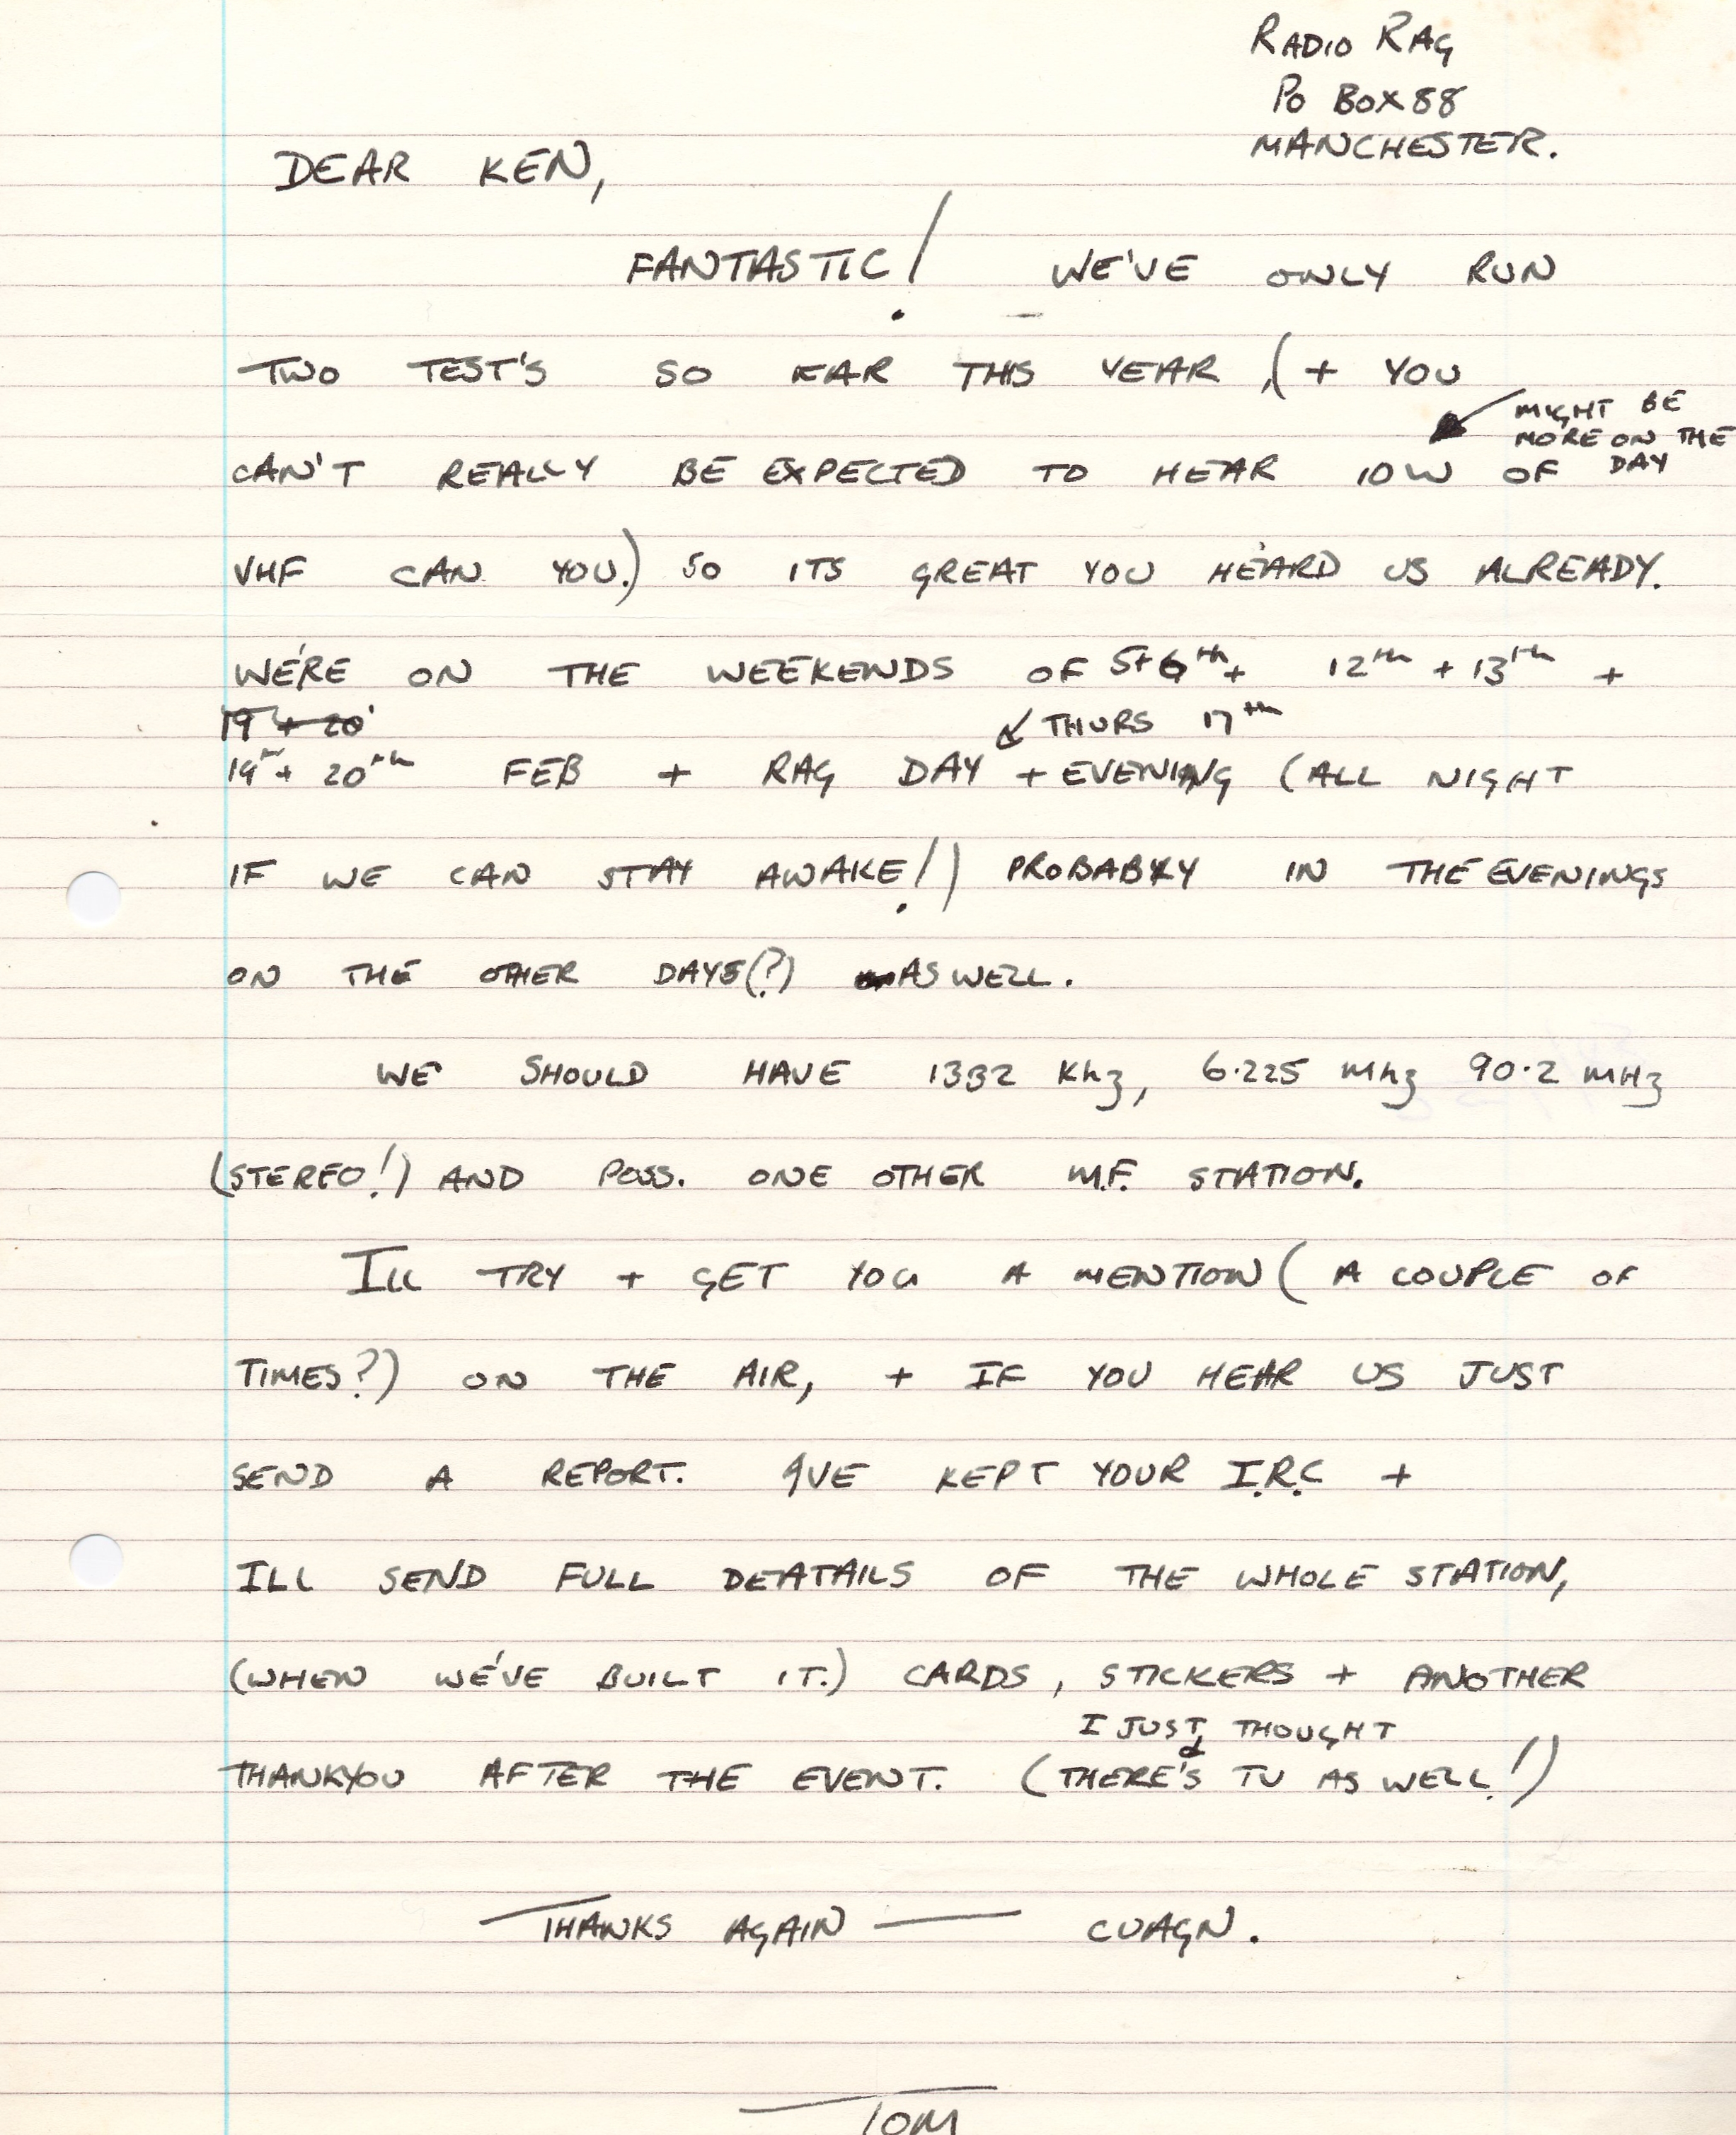 RADIO RAG
PO BOX 88
MANCHESTER.
DEAR KEN,
FANTASTIC! WE'VE ONLY RUN
TWO TEST'S SO FAR THIS YEAR, (+ YOU
MIGHT BE
MORE ON THE
DAY
CAN'T REALLY BE EXPECTED TO HEAR 10W OF
VHF CAN YOU.) SO ITS GREAT YOU HEARD US ALREADY.
WE'RE ON THE WEEKENDS OF 5+6th + 12th + 13th +
19 + 20
THURS 17th
19th + 20th FEB + RAG DAY + EVENING (ALL NIGHT
IF WE CAN STAY AWAKE!) PROBABLY IN THE EVENINGS
ON THE OTHER DAYS(?) AS WELL.
WE SHOULD HAVE 1332 Khz, 6.225 mhz 90.2 mHz
(STEREO!) AND POSS. ONE OTHER M.F. STATION.
ILL TRY + GET YOU A MENTION (A COUPLE OF
TIMES?) ON THE AIR, + IF YOU HEAR US JUST
SEND A REPORT. IVE KEPT YOUR I.R.C +
ILL SEND FULL DEATAILS OF THE WHOLE STATION,
(WHEN WE'VE BUILT IT.) CARDS, STICKERS + ANOTHER
I JUST THOUGHT
THANKYOU AFTER THE EVENT. (THERE'S TV AS WELL!)
THANKS AGAIN — CUAGN.
TOM